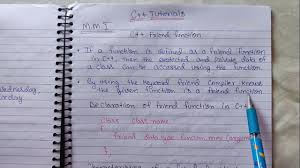 C++ Tutorials
M.M.I
C++ Friend function
• If a function is defined as a friend function
in C++, then the protected and private data of
a class can be accessed using the function.
• By using the keyword friend compiler knows
the given function is a friend function.
Declaration of friend function in C++
class class_name
{
friend data_type function_name (argument
};